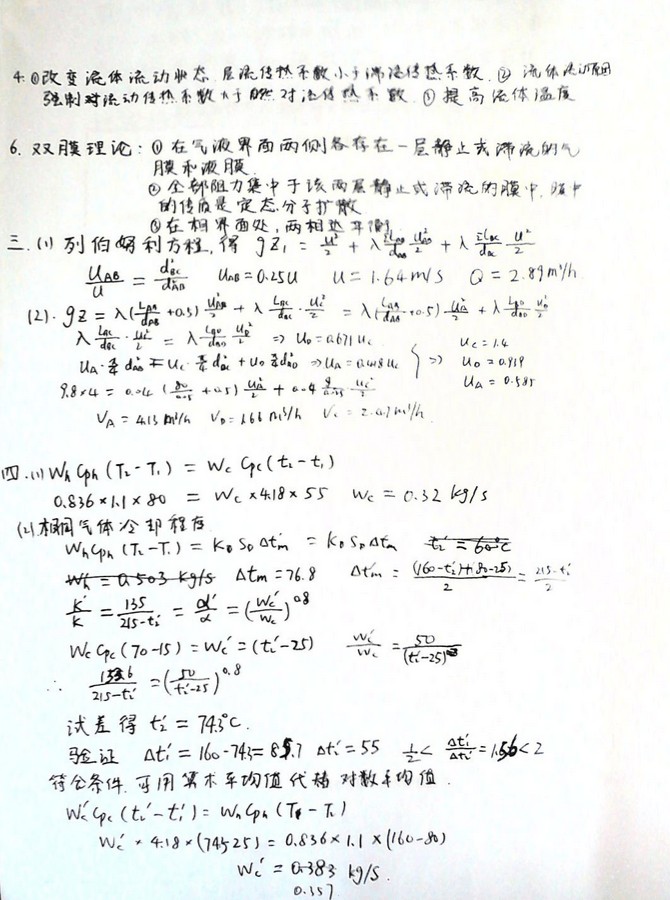 4. ①改变流体流动状态.层流传热系数小于湍流传热系数. ② 流体
强制对流动传热系数大于自然对流传热系数. ① 提高流体温度
6. 双膜理论: ① 在气液界面两侧各存在一层静止或滞流的气
膜和液膜.
② 全部阻力集中于该两层静止或滞流的膜中, 膜中
的传质是定态分子扩散
③ 在相界面处, 两相达平衡
三. (1) 列伯努利方程, 得 gZ₁ = u²/2 + λ ΣL_AB/d_AB u²_AB/2 + λ ΣL_BC/d_BC u²/2
U_AB/U = d²_BC/d²_AB U_AB = 0.25U U = 1.64 m/s Q = 2.89 m³/h.
(2). gZ = λ(L_AB/d_AB + 0.5) u²_AB/2 + λ L_BC/d_BC · u_C²/2 = λ(L_AB/d_AB + 0.5) u²_A/2 + λ L_BD/d_BD u_D²/2
λ L_BC/d_BC · u_C²/2 = λ L_BD/d_BD u_D²/2 ⇒ U_D = 0.671 U_C
U_A · π/4 d²_AB = U_C · π/4 d²_BC + U_D π/4 d²_BD ⇒ U_A = 0.418 U_C ⇒ U_C = 1.4
U_D = 0.939
U_A = 0.585
9.8×4 = 0.04 ( + 0.5) u_A²/2 + · u_C²/2
V_A = 4.13 m³/h V_D = 1.66 m³/h V_C = m³/h.
四. (1) W_h C_ph (T₂ - T₁) = W_c C_pc (t₂ - t₁)
0.836×1.1×80 = W_c × 4.18 × 55 W_c = 0.32 kg/s
(2) 相同气体冷却程度
W_h C_ph (T₂ - T₁) = K₀ S₀ Δt'm = K₀ S₀ Δtm t₂' = 60℃
W_h' = 0.503 kg/s Δtm = 76.8 Δt'm = ((160-t₂')+(80-25))/2 = (215-t')/2
K'/K = 135/(215-t₂') = α'/α = (W_c'/W_c)^0.8
W_c C_pc (70-15) = W_c' = (t₂'-25) W_c'/W_c = 50/(t₂'-25)
∴ 153.6/(215-t₂') = (50/(t₂'-25))^0.8
试差得 t₂' = 74.3℃.
验证 Δt₁' = 160-74.3 = 85.7 Δt₁' = 55 1/2 < Δt₁'/Δt₁' = 1.56 < 2
符合条件. 可用算术平均值代替对数平均值.
W_c' C_pc (t₂' - t₁') = W_h C_ph (T₂ - T₁)
W_c' × 4.18 × (74.5-25) = 0.836 × 1.1 × (160-80)
W_c' = 0.383 kg/s.
0.357